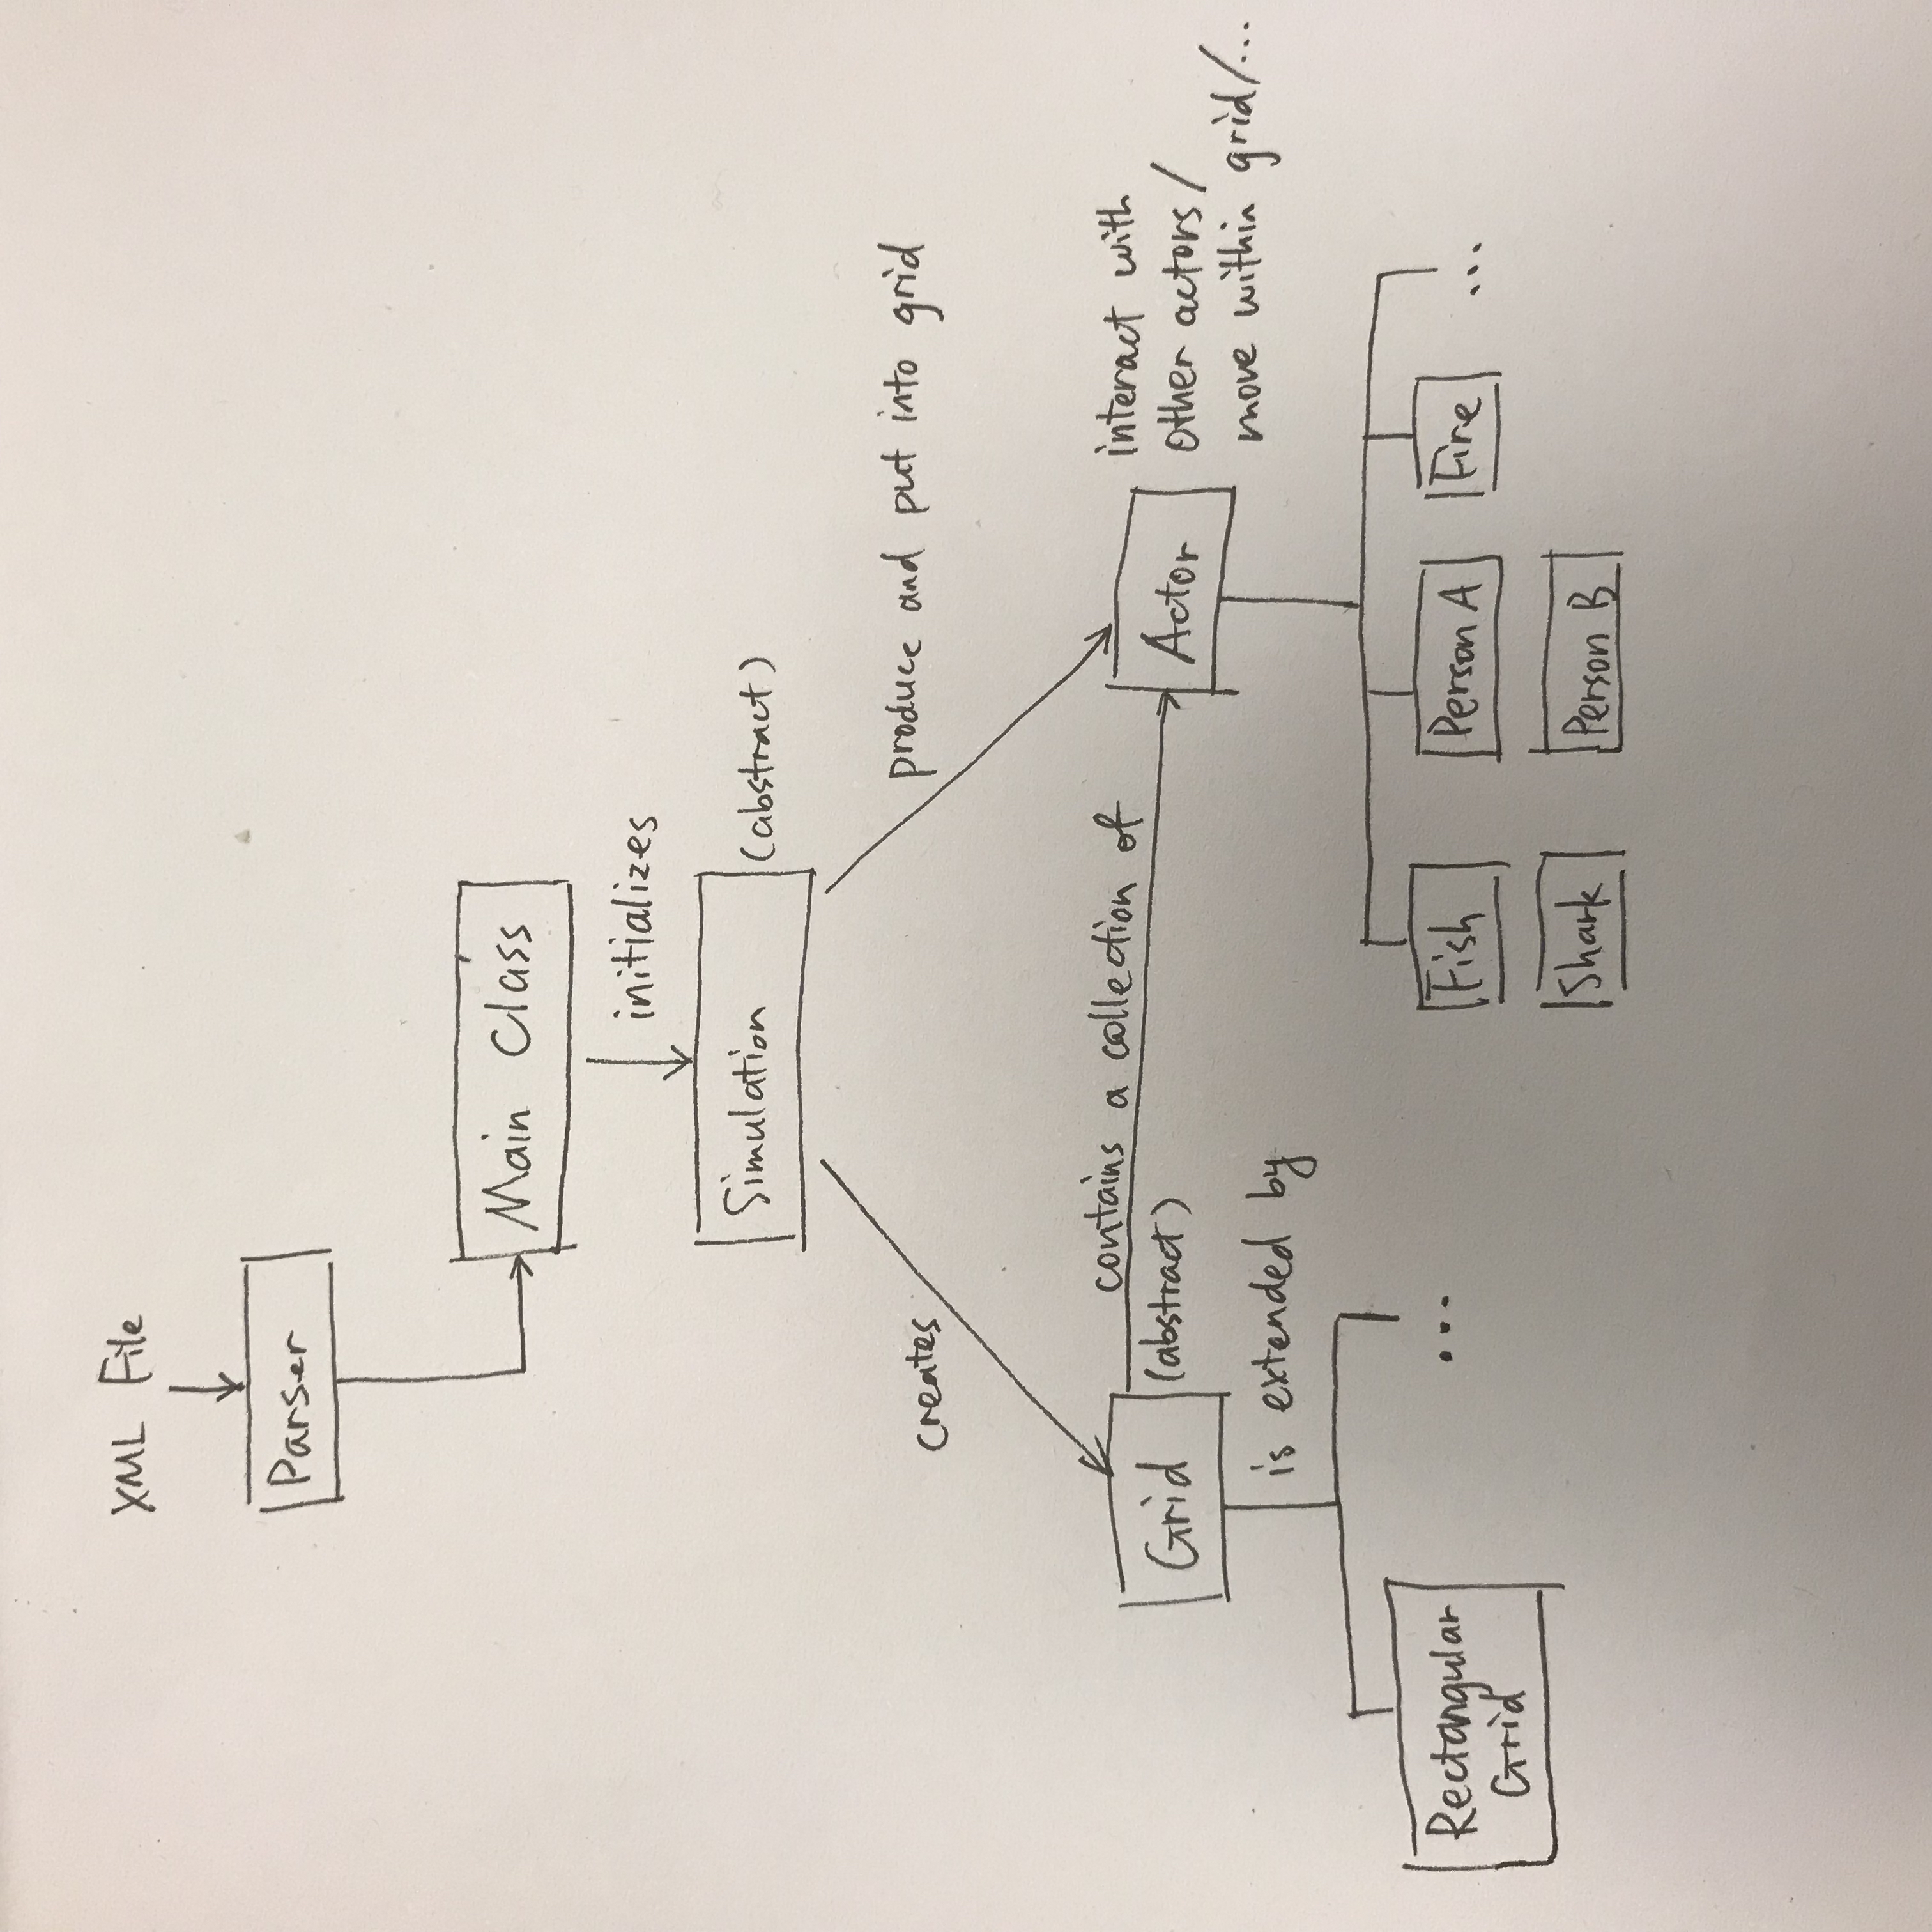 XML File
Parser
Main Class
initializes
Simulation
(abstract)
creates
produce and put into grid
Grid
(abstract)
contains a collection of
Actor
interact with
other actors/
move within grid/...
is extended by
Rectangular
Grid
...
Fish
Person A
Fire
...
Shark
Person B